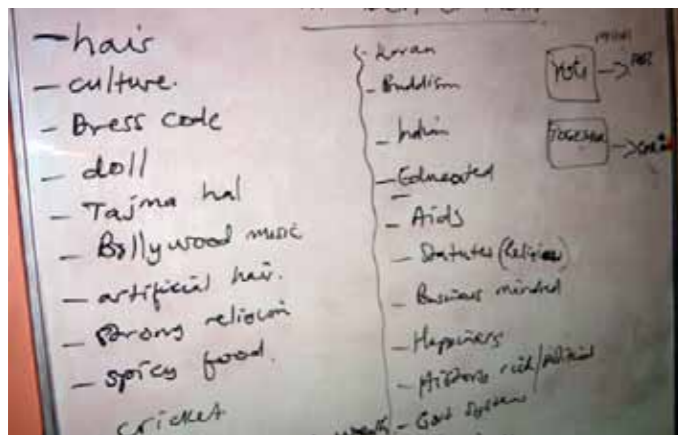 - hair
- culture.
- Dress code
- doll
- Tajma hal
- Bollywood music
- artificial hair.
- strong religion
- spicy food.
cricket
- koran
- Buddism
- Indian
- Educated
- Aids
- Statutes (Religious)
- Business minded
- Happiness
- History rich/political
- Govt System
TOGETHER